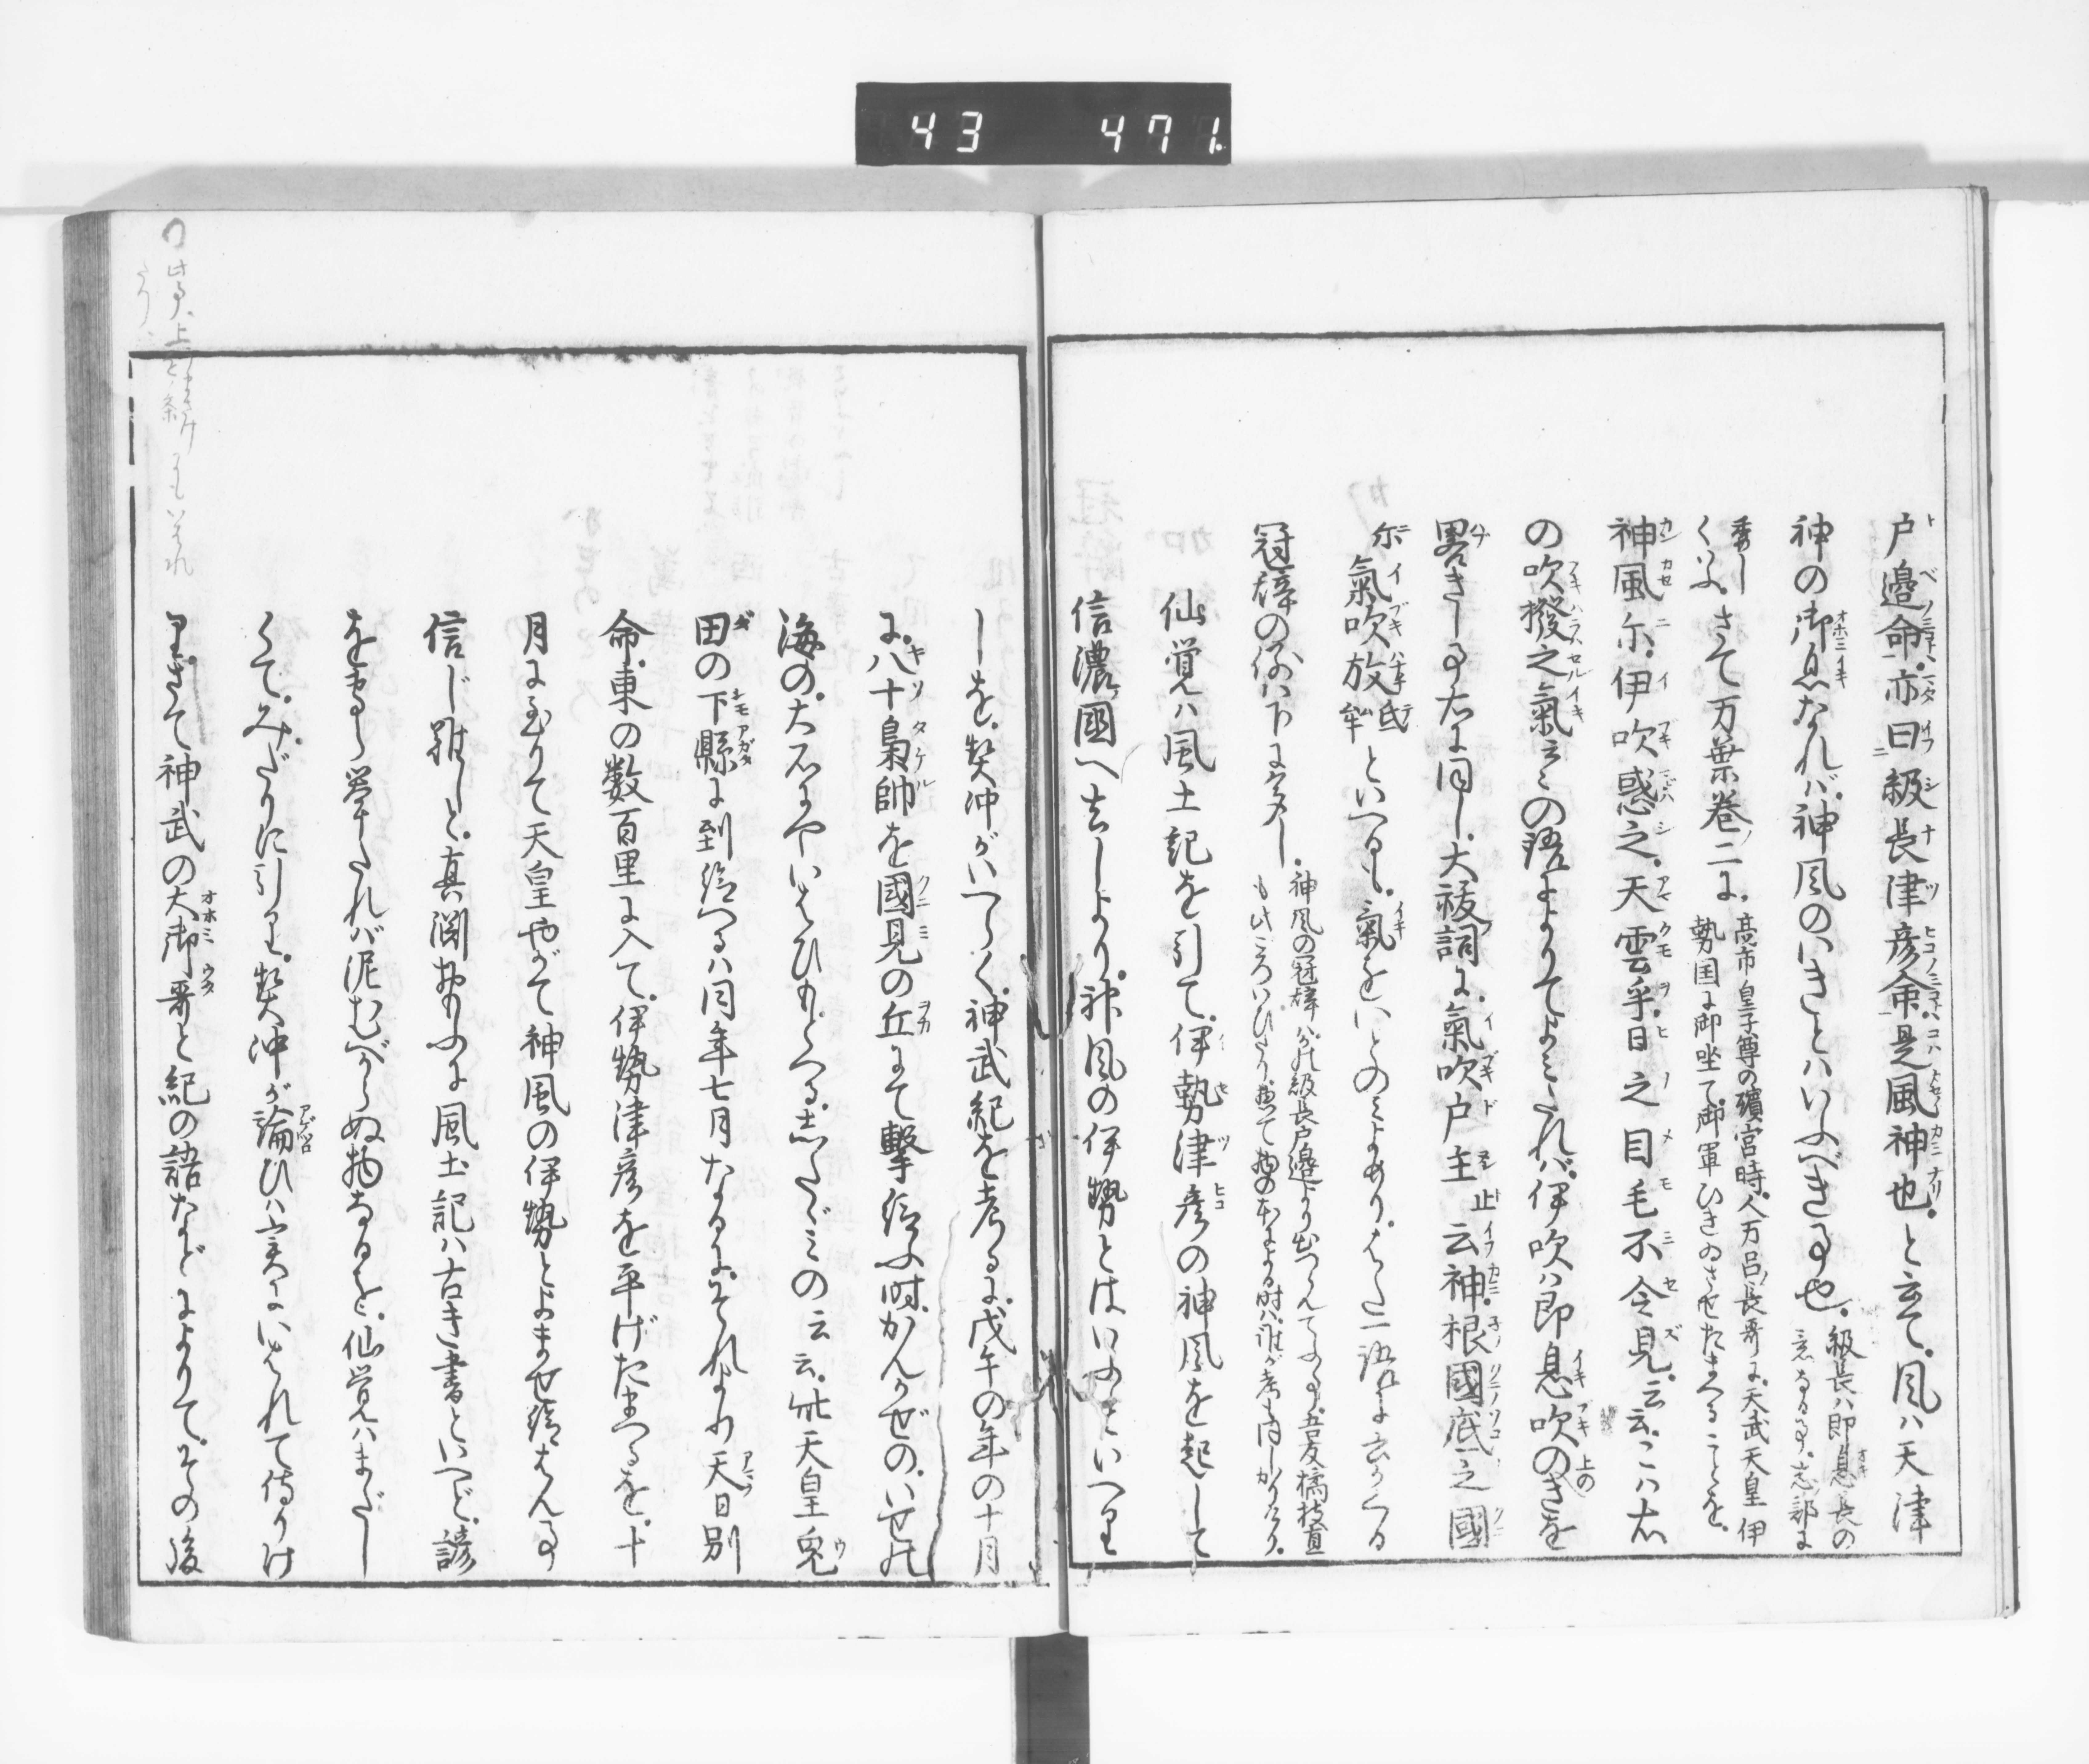 43 471
戸邉命亦曰級長津彦命是風神也と云て風ハ天津
神の御息なれバ神風のいきとハいふべき事也級長ハ即息長の
意なる事志部に
委しくいふさて万葉巻二に高市皇子尊の殯宮時人万呂ノ長哥に天武天皇伊
勢国に御坐て御軍ひきゐさせたまへることを
神風尓伊吹惑之天雲乎日之目毛不令見云云こハ右
の吹撥之氣云々の語によりてよみたれバ伊吹ハ即息吹のきを
畧きし事右に同し大祓詞に氣吹戸主止云神根國底之國
尓氣吹放氐牟といへるも氣をいとのみよめりまた一語に云かくる
冠辞の例ハ下に多し神風の冠辞ハ級長戸邉よりむつて吾友橘枝直
も此ころいひたり
仙覚ハ風土記を引て伊勢津彦の神風を起して
信濃國へ去しより神風の伊勢とはいふといへり
しを契沖がいへらく神武紀を考るに戊午の年の十月
に八十梟帥を國見の丘にて撃給ふ時かんかぜのいせの
海の大石にやいはひもとへるしたゞみの云云此天皇兎
田の下縣に到給へるハ同年七月なるにそれより天日別
命東の数百里に入て伊勢津彦を平げたまへるを十
月に至りて天皇やがて神風の伊勢とよませ給はん事
信じ難しと真淵おもふに風土記ハ古き書といへど諺
をも擧たれバ泥むべからぬ物なるを仙覚ハまだし
くてみだりに引り契沖が論ひハ実にいはれて侍りけ
りさて神武の大御哥と紀の語などによりてその後